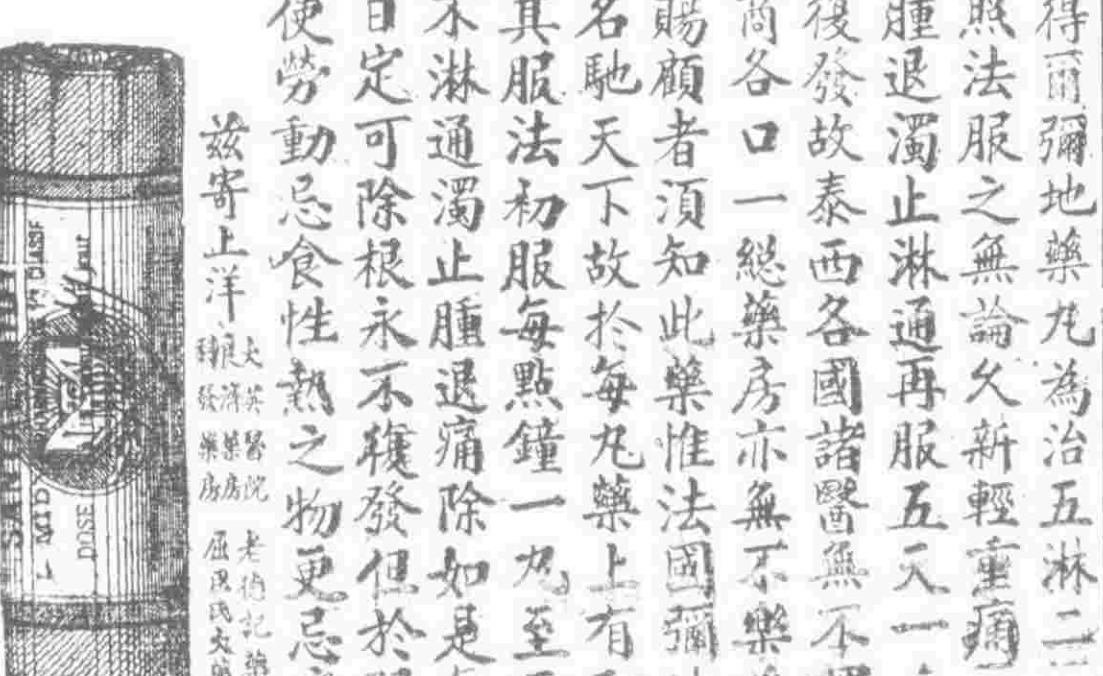 得爾彌地藥丸為治五淋二
照法服之無論久新輕重痛
腫退濁止淋通再服五天一
復發故泰西各國諸醫無不
商各口一總藥房亦無不樂
賜顧者須知此藥惟法國彌
名馳天下故於每丸藥上有
其服法初服每點鐘一丸至
不淋通濁止腫退痛除如是
日定可除根永不複發但於
使勞動忌食性熱之物更忌
茲寄上洋
大英醫院
良濟藥房
發藥房
老德記藥
屈臣氏大藥
DOSE